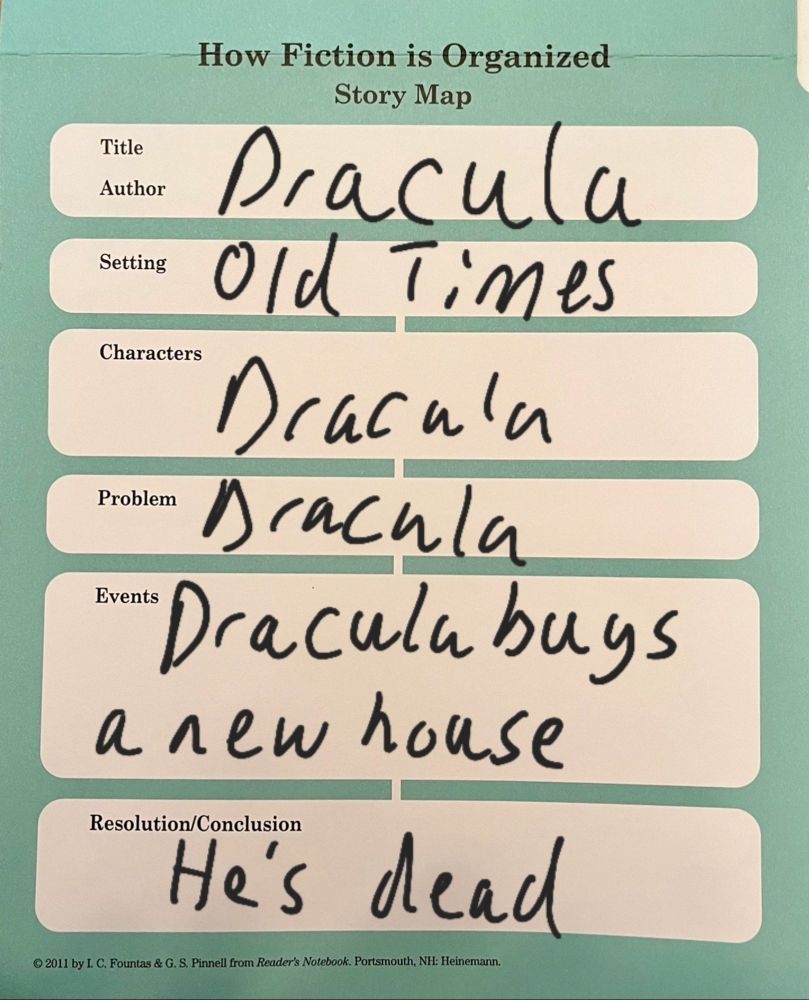 How Fiction is Organized
Story Map
Title
Author
Dracula
Setting
Old Times
Characters
Dracula
Problem
Dracula
Events
Dracula buys
a new house
Resolution/Conclusion
He's dead
© 2011 by I. C. Fountas & G. S. Pinnell from Reader's Notebook. Portsmouth, NH: Heinemann.